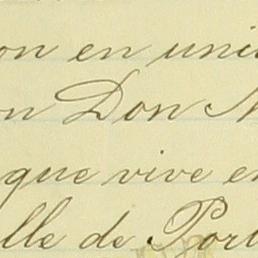 on en uni
on Don M
que vive en
lle de Port